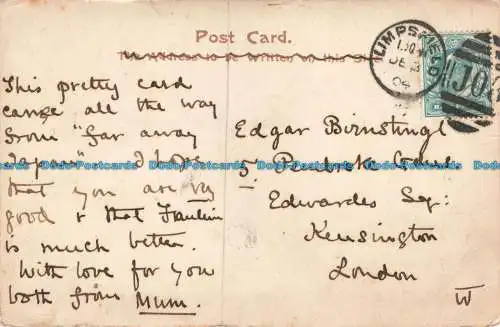 Post Card.
The Address to be Written on this Side
LIMPSFIELD
DE
04
J03
This pretty card
came all the way
from "far away
Japan" I hope
that you are vy
good & that Fraulein
is much better.
With love for you
both from Mum.
Edgar Birnstingl
5 Pembroke Court
Edwardes Sq:
Kensington
London
W
Dodo-Postcards Dodo-Postcards Dodo-Postcards Dodo-Postcards Dodo-Postcards